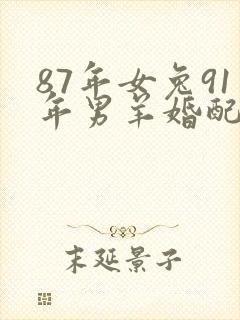 87年女兔91
年男羊婚配
末延景子